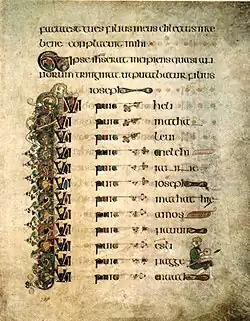 factaest tu es filius meus dilectus inte
bene conplacuit mihi
Et ipse ihs erat incipiens quasi an
norum triginta ut putabatur filius
ioseph
qui fuit heli
qui fuit matha
qui fuit levi
qui fuit melchi
qui fuit
qui fuit ioseph
qui fuit mathathie
qui fuit amos
qui fuit nauum
qui fuit esli
qui fuit nagge
qui fuit maath